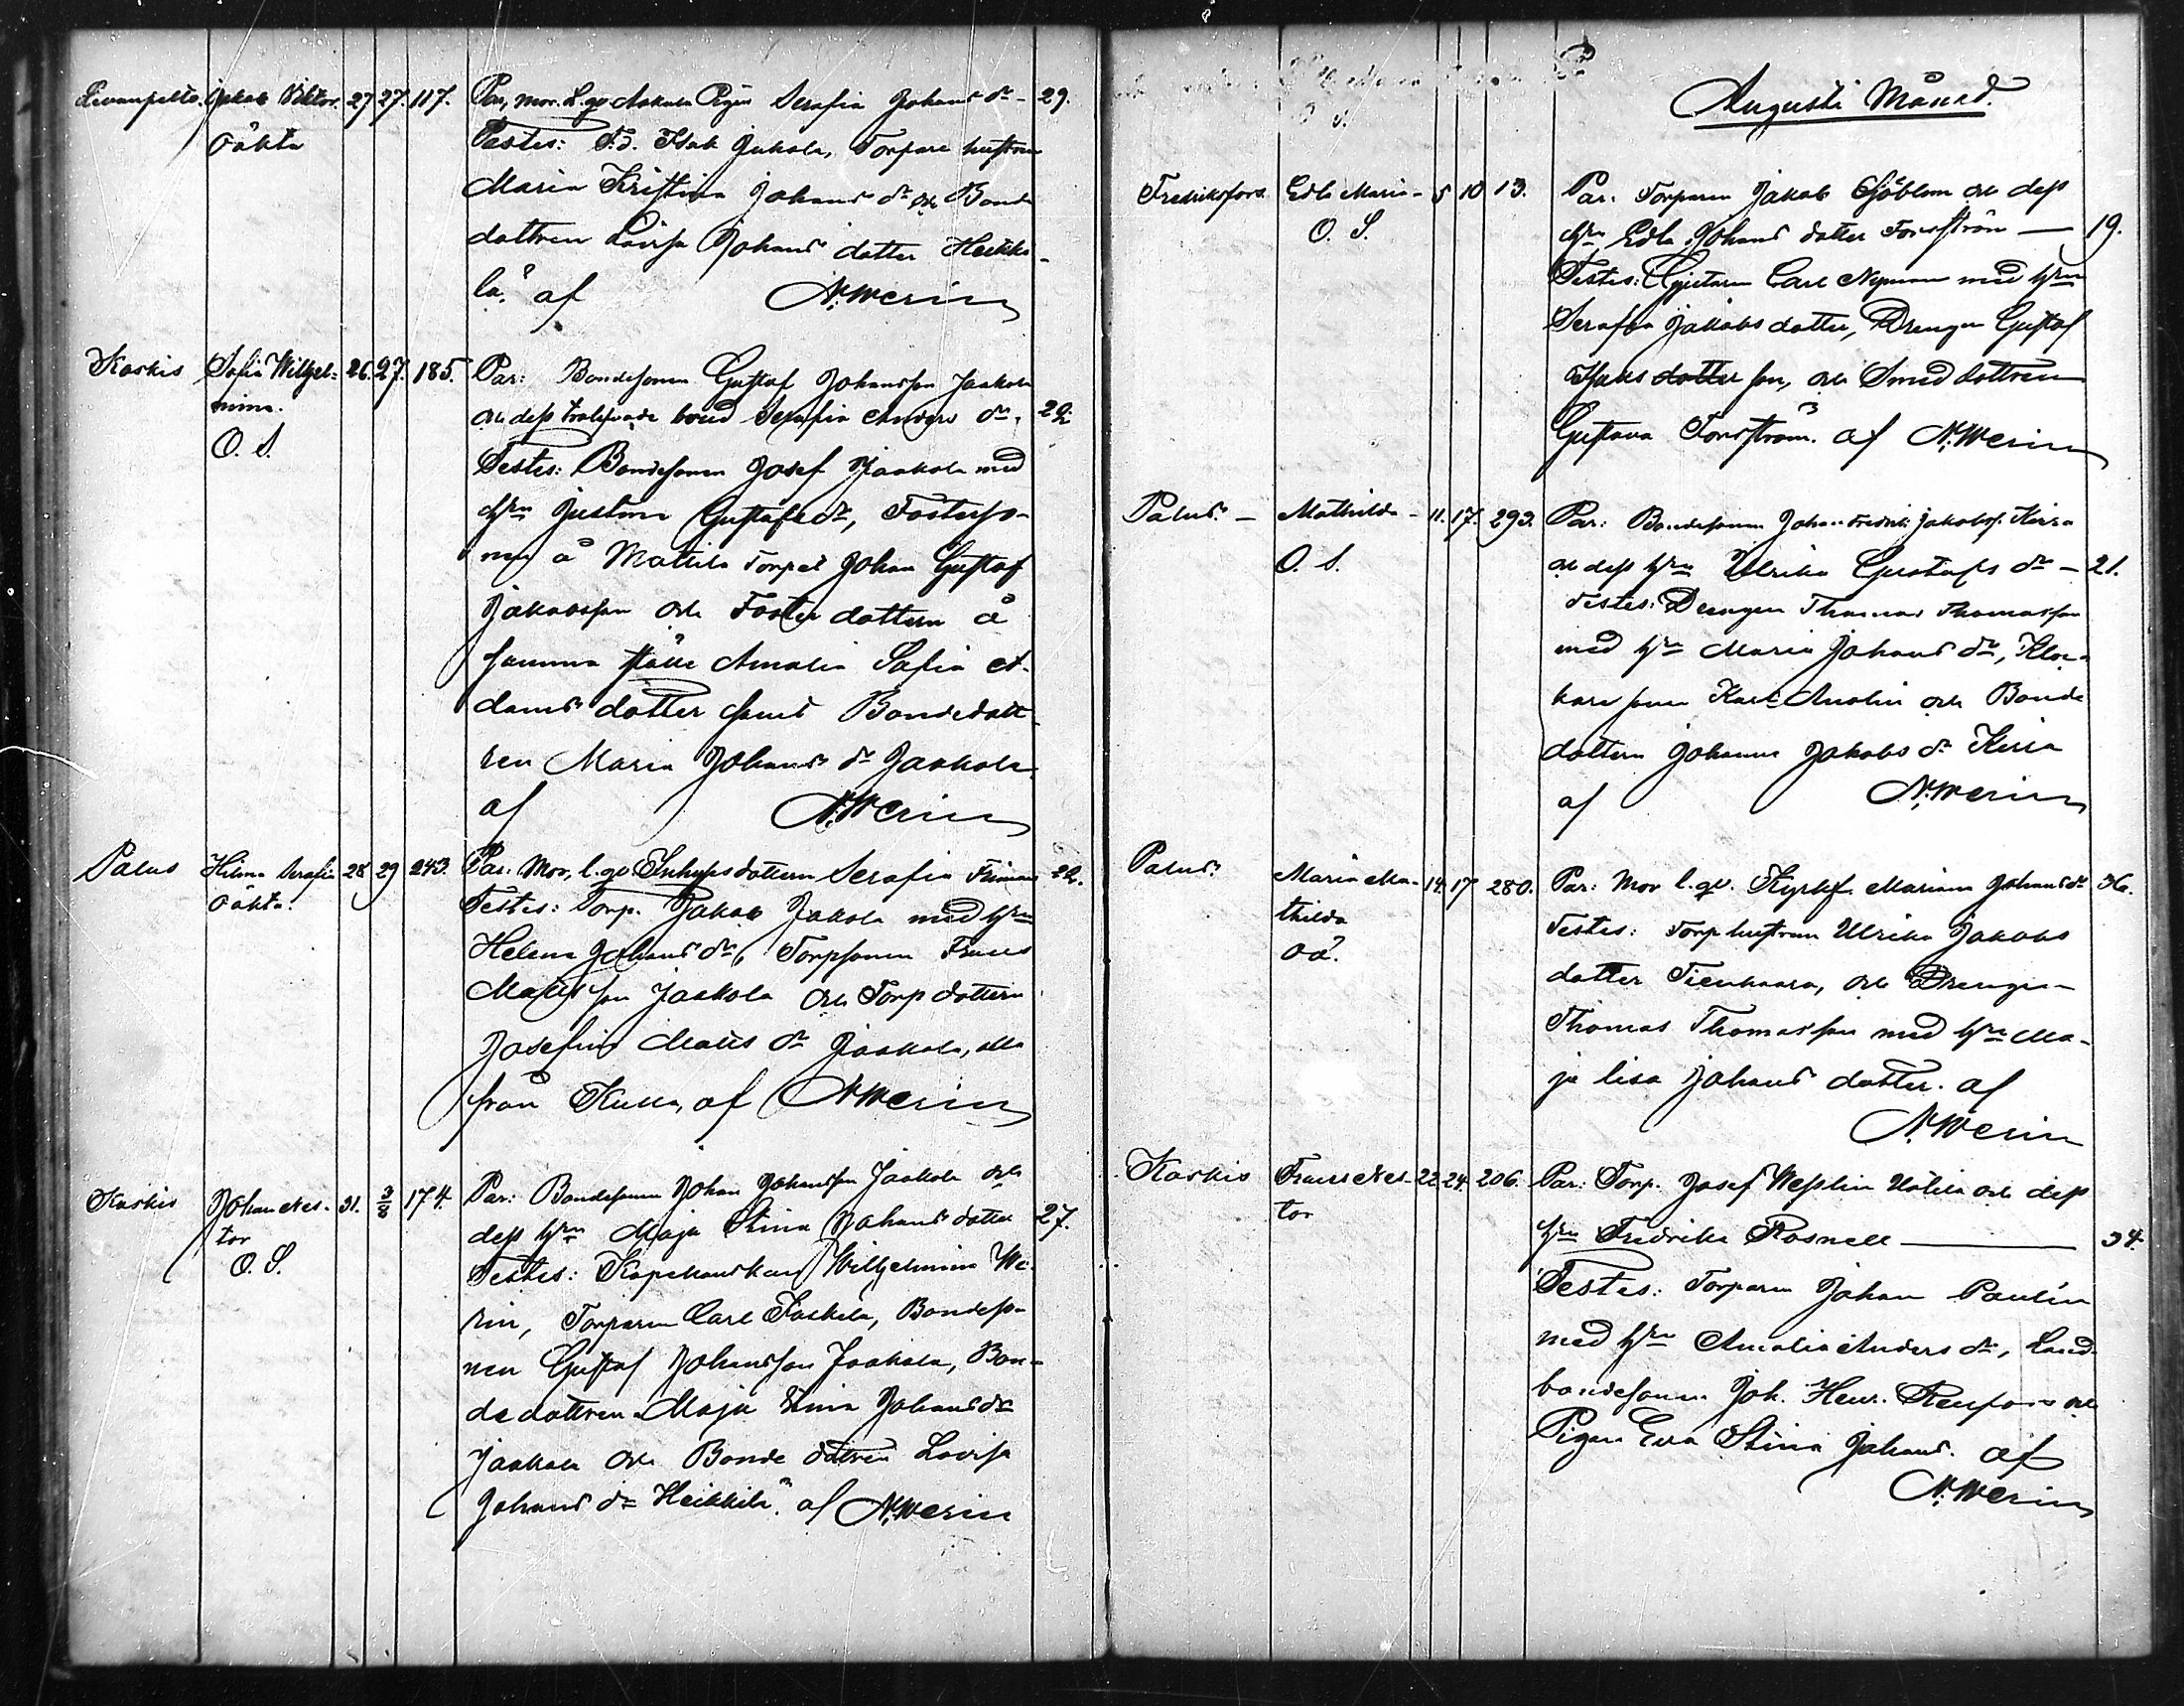 Levanpelto Jakob Viktor. 27 27. 117. Par, mor. l. qv. Pigan Serafia Johans dr - 29.
oäkta Testes: F.d. Isak Jakola, Torpare hustrun
Maria Kristina Johans dr och Bonde
dottren Lovisa Johans dotter Heikki-
lä. af N. Werin
Koskis Sofia Wilhel- 26. 27. 185. Par: Bondesonen Gustaf Johansson Jaakola
mina. och dess trolofvade brud Serafia Anders dr. 22.
O. S. Testes: Bondesonen Josef Jaakola med
hrn Justina Gustafs dr, Fosterso-
nen å Mattila Torpet Johan Gustaf
Jakobsson och Foster dottern å
samma ställe Amalia Sofia A-
dams dotter samt Bondedott-
ren Maria Johans dr Jaakola.
af N. Werin
Palus Hilma Serafia 28 29 243. Par. Mor, l. qv. Inhysdottern Serafia 22.
oäkta. Testes: Torp. Jakob Jakola med hrn
Helena Johans dr, Torpsonen Frans
Matts son Jaakola och Torp dottern
Josefina Matts dr Jaakola, alla
från Kulla, af N. Werin
Koskis Johan Nes- 31. 3/8 174. Par: Bondesonen Johan Johansson Jaakola och
tor dess hrn Maja Stina Johans dotter 27.
O. S. Testes: Wilhelmina We-
rin, Torparen Carl Jaakola, Bondeso-
nen Gustaf Johansson Jaakola, Bon-
dedottren Maja Stina Johans dr
Jaakola och Bonde dottren Lovisa
Johans dr Heikkilä. af N. Werin
Augusti Månad.
Fredriksfors. Edla Maria - 5 10 13. Par. Torparen Jakob Sjöblom och dess
O. S. hrn Edla Johans dotter Forsström — 19.
Testes: Gjutaren Carl Nyman med hrn
Serafia Jakobs dotter, Drengen Gustaf
Isaks dotter son, och Smed dottren
Gustava Forsström. af N. Werin
Palus. - Mathilda - 11. 17. 293. Par: Bondesonen Johan Fredrik Jakobss. Kirra
O. S. och dess hrn Ulrika Gustafs dr - 21.
Testes: Drengen Thomas Thomasson
med hrn Maria Johans dr, Kloc-
kare sonen Karl och Bonde
dottern Johanna Jakobs dr Kirra
af N. Werin
Palus. Maria Ma- 14. 17 280. Par: Mor l. qv. Mariana Johans dr 36.
thilda Testes: Torp hustrun Ulrika Jakobs
oä. dotter Tienhaara, och Drengen
Thomas Thomasson med hrn Ma-
ja lisa Johans dotter. af
N. Werin
Koskis Frans Nes- 22. 24. 206. Par: Torp. Josef Wesslin Uotila och dess
tor hrn Fredrika Rosnell — 34.
Testes: Torparen Johan Paulin
med hrn Amalia Anders dr, Land-
bondesonen Joh. Henr. Renfors och
Pigan Eva Stina Johans. af
N. Werin